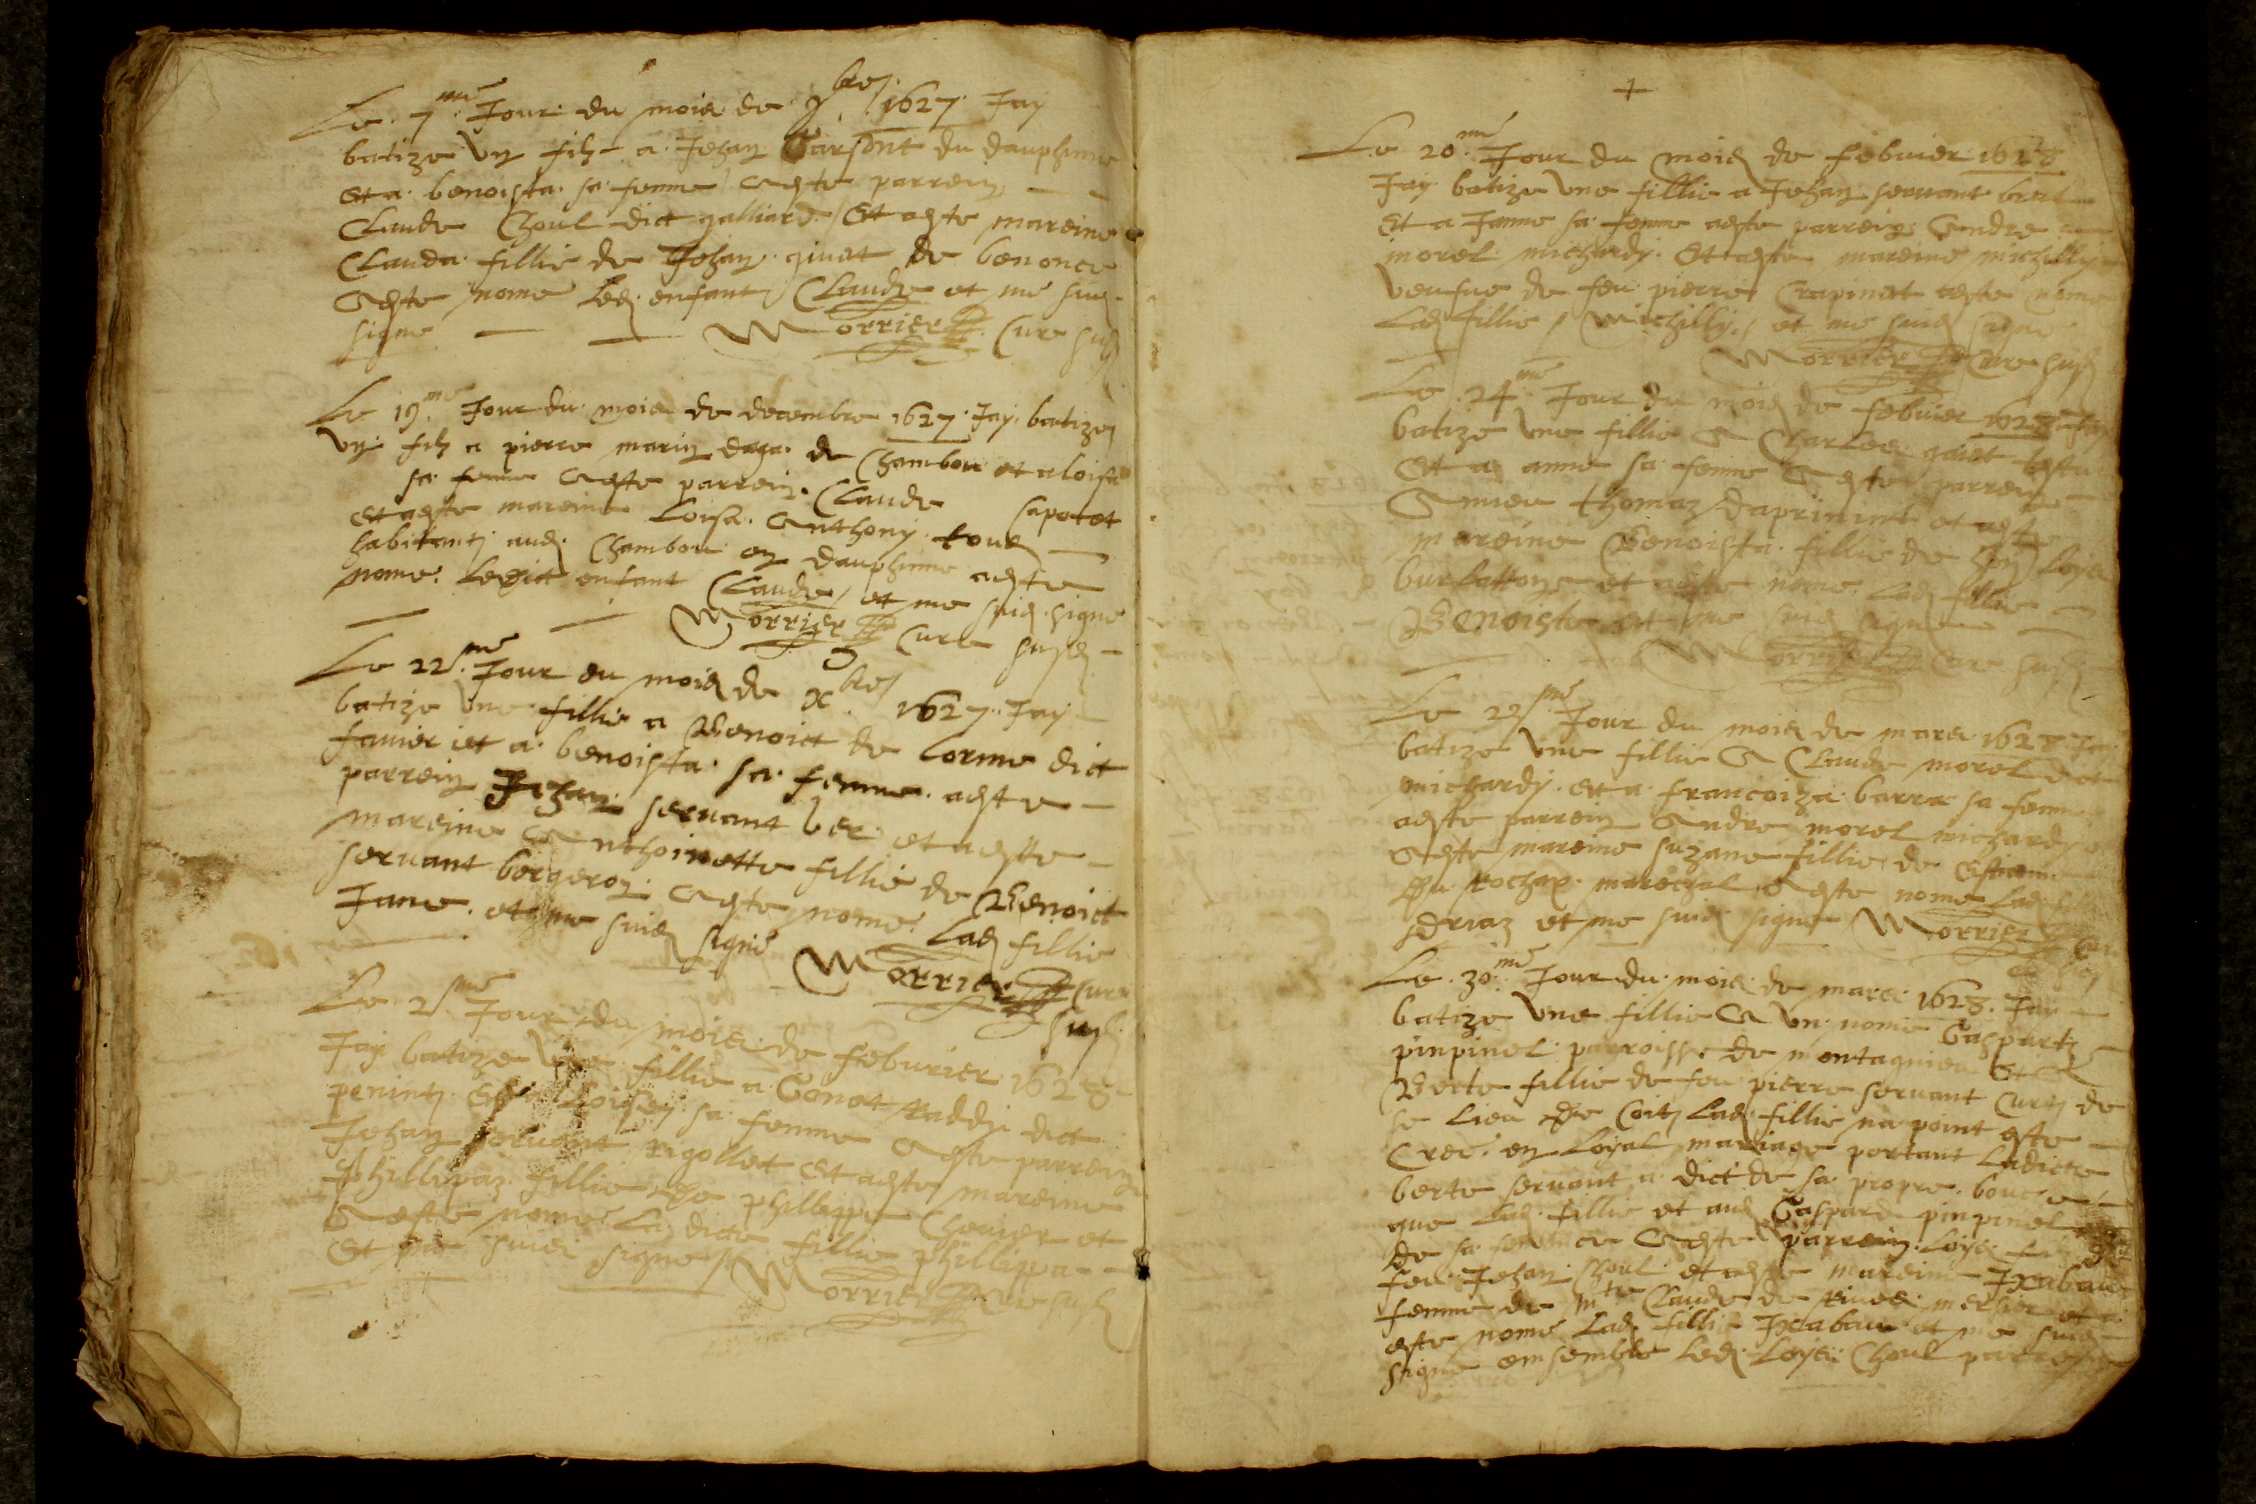 Le 7.me Jour du mois de 9.bre 1627. Jay
batize vn filz a Jehan Garsont du dauphine
et a benoista sa femme a este parrein
Claude Choul dict galliard / et a este mareine
Clauda fillie de Jehan ginet de benonce
a este nome led. enfant Claude et me suis
signe Morrier Cure susd
Le 19.me Jour du mois de decembre 1627. Jay batize
vn filz a pierre marin de Chambou et a loisa
sa femme a este parrein Claude Capotet
et a este mareine Loisa Anthony tous
habitants aud. Chambou en dauphine a este
nome Ledict enfant Claude, et me suis signe
Morrier Cure susd
Le 22.me Jour du mois de x.bre 1627. Jay
batize vne fillie a Benoict de lorme dict
fauier et a benoista sa femme a este
parrein Jehan seruant et a este
mareine Anthoinette fillie de Benoict
seruant bergeron a este nome Lad fillie
Jane et me suis signe Morrier Cure
susd
Le 2.me Jour du mois de feburier 1628
Jay batize vne fillie a Gonet raddy dict
penint et a Loise sa femme a este parrein
Jehan seruant rigollet et a este mareine
phillipa fillie de phillippe Cheuier et
a este nome Ladicte fillie phillippa
et me suis signe / Morrier Cure susd
+
Le 20.me Jour du mois de febvrier 1628
Jay batize vne fillie a Jehan seruant
et a Janne sa femme a este parrein Andre
morel michardy. et a este mareine michilly
veufue de feu pierre Crapinet a este nome
Lad fillie / Michilly / et me suis signe
Morrier Cure susd
Le 24.me Jour du mois de febvrier 1628 Jay
batize vne fillie A Charles ginet
et a anne sa femme A este parrein
Thomaz et a este
mareine Benoista fillie de
et a este nome Lad fillie
Benoiste et me suis signe
Morrier Cure susd
Le 22.me Jour du mois de mars 1628 Jay
batize vne fillie A Claude morel dict
michardy et a francoiza barra sa femme
a este parrein Andre morel michardy
A este mareine suzane fillie de Estienne
rochaz marechal a este nome Lad
et me suis signe Morrier
Le 30.me Jour du mois de mars 1628. Jay
batize vne fillie A vn nome Gaspart
pinpinel parroisse de montagnieu et a
Berte fillie de feu pierre seruant Cury de
se lieu de Coitz Lad. fillie na point este
Cree en Loyal mariage portant Ladicte
berte seruant a dict de sa propre bouche
que Lad. fillie et aud Gaspard pinpinel
de sa a este parrein Loys filz de
feu Jehan Choul et a este mareine Ixabau
femme de m.tre Claude de riues mersier et a
este nome Lad fillie Ixabau et me suis
signe emsemble Led. Loys Choul parrein